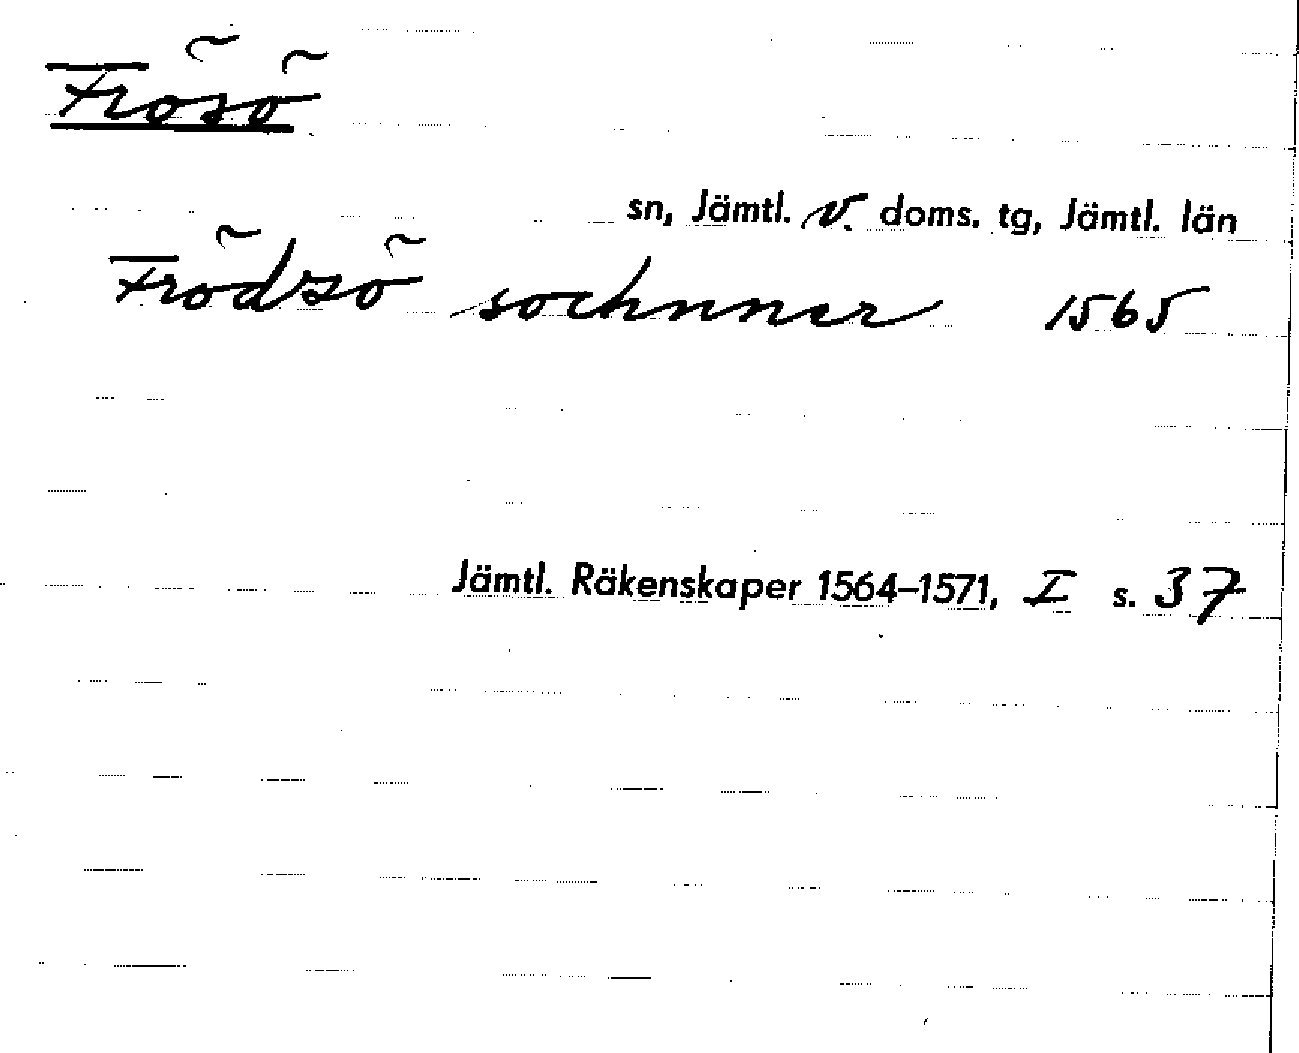 Frösö
sn, Jämtl. v. doms. tg, Jämtl. län
Frödzö sochnner 1565
Jämtl. Räkenskaper 1564–1571, I s. 37